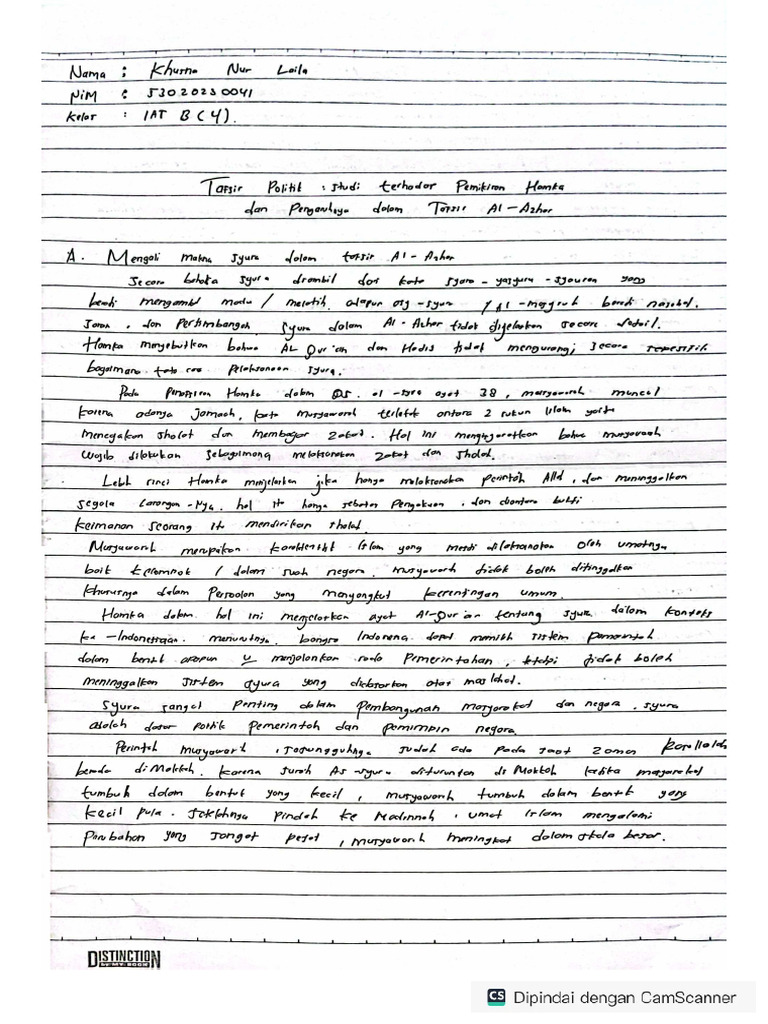 Nama : Khusna Nur Laila
NIM : 53020230041
Kelas : IAT B (4).
Tafsir Politik : Studi terhadap Pemikiran Hamka
dan Pengaruhnya dalam Tafsir Al-Azhar
A. Mengali makna syura dalam tafsir Al-Azhar
Secara bahasa syura diambil dari kata syara-yasyuru-syauran yang
berarti mengambil madu / melatih. adapun asy-syura / Al-masyurah berarti nasehat.
saran, dan Pertimbangan. syura dalam Al-Azhar tidak dijelaskan secara detail.
Hamka menyebutkan bahwa AL Qur'an dan Hadis tidak mengurangi secara spesifik
bagaimana tata cara Pelaksanaan syura.
Pada Penafsiran Hamka dalam QS. al-syura ayat 38, musyawarah muncul
karena adanya Jamaah, kata musyawarah terletak antara 2 rukun Islam yaitu
menegakan sholat dan membayar zakat. Hal ini mengisyaratkan bahwa musyawarah
wajib dilakukan sebagaimana melaksanakan zakat dan sholat.
Lebih rinci Hamka menjelaskan jika hanya melaksanakan perintah Allah, dan meninggalkan
segala larangan-Nya. hal itu hanya sebatas Pengakuan, dan diantara bukti
keimanan seorang itu mendirikan sholat.
Musyawarah merupakan karakteristik Islam yang mesti dilaksanakan oleh umatnya
baik kelompok / dalam suatu negara. musyawarah tidak boleh ditinggalkan
khususnya dalam Persoalan yang menyangkut kepentingan umum.
Hamka dalam hal ini menjelaskan ayat Al-Qur'an tentang syura dalam konteks
ke-Indonesiaan. menurutnya. bangsa Indonesia dapat memilih sistem pemerintah
dalam bentuk apapun u/ menjalankan roda Pemerintahan, tetapi tidak boleh
meninggalkan sistem syura yang didasarkan atas maslahat.
Syura sangat Penting dalam Pembangunan masyarakat dan negara. syura
adalah dasar politik Pemerintah dan pemimpin negara.
Perintah musyawarah, sesungguhnya sudah ada pada saat zaman Rasulullah
berada di Makkah. karena surah As-syura diturunkan di Makkah ketika masyarakat
tumbuh dalam bentuk yang kecil, musyawarah tumbuh dalam bentuk yang
kecil pula. Setelahnya pindah ke Madinnah, umat Islam mengalami
Perubahan yang sangat pesat, musyawarah meningkat dalam skala besar.
DISTINCTION
BY MY BOOK
CS Dipindai dengan CamScanner